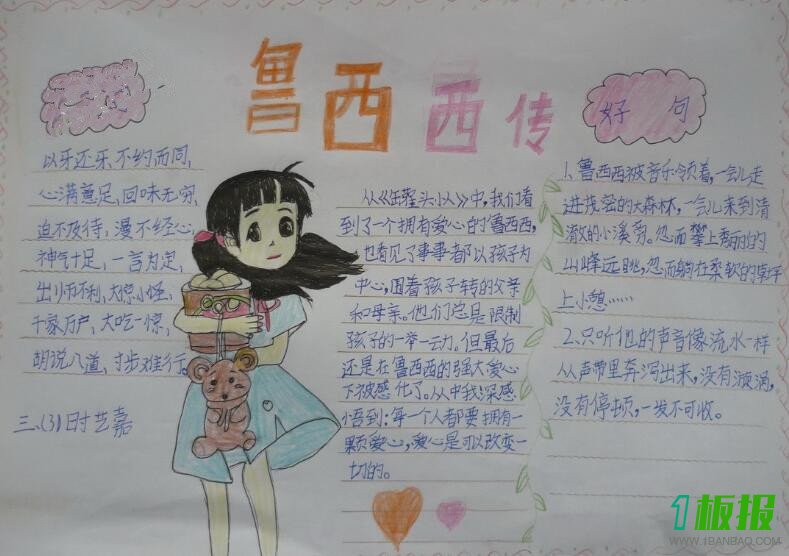 鲁西西传
以牙还牙、不约而同、
心满意足、回味无穷、
迫不及待、漫不经心、
神气十足、一言为定、
出师不利、大惊小怪、
千家万户、大吃一惊、
胡说八道、寸步难行。
三、(3)时艺嘉
从《罐头小人》中,我们看
到了一个拥有爱心的鲁西西,
也看见了事事都以孩子为
中心,围着孩子转的父亲
和母亲。他们总是限制
孩子的一举一动。但最后
还是在鲁西西的强大爱心
下被感化了。从中我深感
悟到:每一个人都要拥有一
颗爱心,爱心是可以改变一
切的。
好句
1、鲁西西被音乐领着,一会儿走
进茂密的大森林,一会儿来到清
澈的小溪旁。忽而攀上秀丽的
山峰远眺,忽而躺在柔软的草坪
上小憩……
2、只听他的声音像流水一样
从声带里奔泻出来,没有漩涡,
没有停顿,一发不可收。
1板报
WWW.1BANBAO.COM